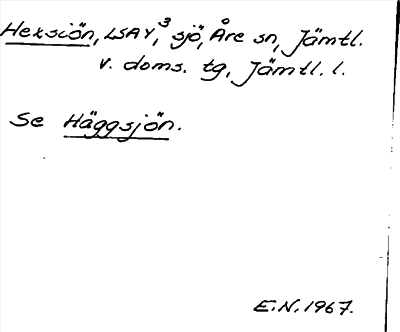 Heksiön, LSA Y, ³ sjö, Åre sn, Jämtl.
v. doms. tg, Jämtl. l.
Se Häggsjön.
E.N. 1967.